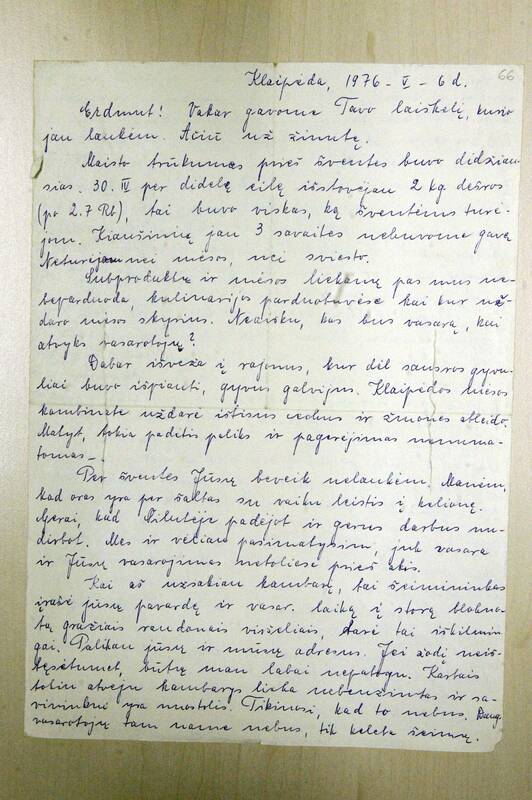 66
Klaipėda, 1976 - V - 6 d.
Erdmut! Vakar gavome Tavo laiškelį, kurio
jau laukėm. Ačiū už žinutę.
Maisto trūkumas prieš šventes buvo didžiau-
sias. 30. IV per didelę eilę išstovėjau 2 kg dešros
(po 2.7 Rb), tai buvo viskas, ką šventėms turė-
jom. Kiaušinių jau 3 savaites nebuvome gavę
Neturėjom nei mėsos, nei sviesto.
Subproduktų ir mėsos liekanų pas mus ne-
beparduoda, kulinarijos parduotuvėse kai kur už-
daro mėsos skyrius. Neaišku, kas bus vasarą, kai
atvyks vasarotojų?
Dabar išveža į rajonus, kur dėl sausros gyvu-
liai buvo išpiauti, gyvus galvijus. Klaipėdos mėsos
kombinate uždarė ištisus cechus ir žmones atleido.
Matyt, tokia padėtis paliks ir pagerėjimas nenuma-
tomas.
Per šventes Jūsų beveik nelaukėm. Manėm,
kad oras yra per šaltas su vaiku leistis į kelionę.
Gerai, kad Šilutėje padėjot ir gerus darbus nu-
dirbot. Mes ir vėliau pasimatysim, juk vasara
ir Jūsų vasarojimas netoliese prieš akis.
Kai aš užsakiau kambarį, tai šeimininkas
įrašė jūsų pavardę ir vasar. laiką į storą blokno-
tą gražiais raudonais viršeliais, darė tai iškilmin-
gai. Palikau jūsų ir mūsų adresus. Jei žodį neiš-
tęsėtumėt, būtų man labai nepatogu. Kartais
tokiu atveju kambarys lieka nebenuomotas ir sa-
vininkui yra nuostolis. Tikiuosi, kad to nebus. Daug
vasarotojų tam name nebus, tik keletas šeimų.